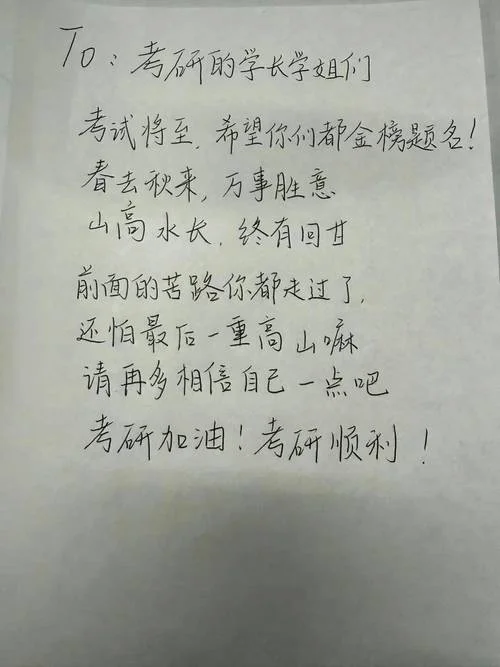 To：考研的学长学姐们
考试将至，希望你们都金榜题名！
春去秋来，万事胜意
山高水长，终有回甘
前面的苦路你都走过了，
还怕最后一重高山嘛
请再多相信自己一点吧
考研加油！考研顺利！